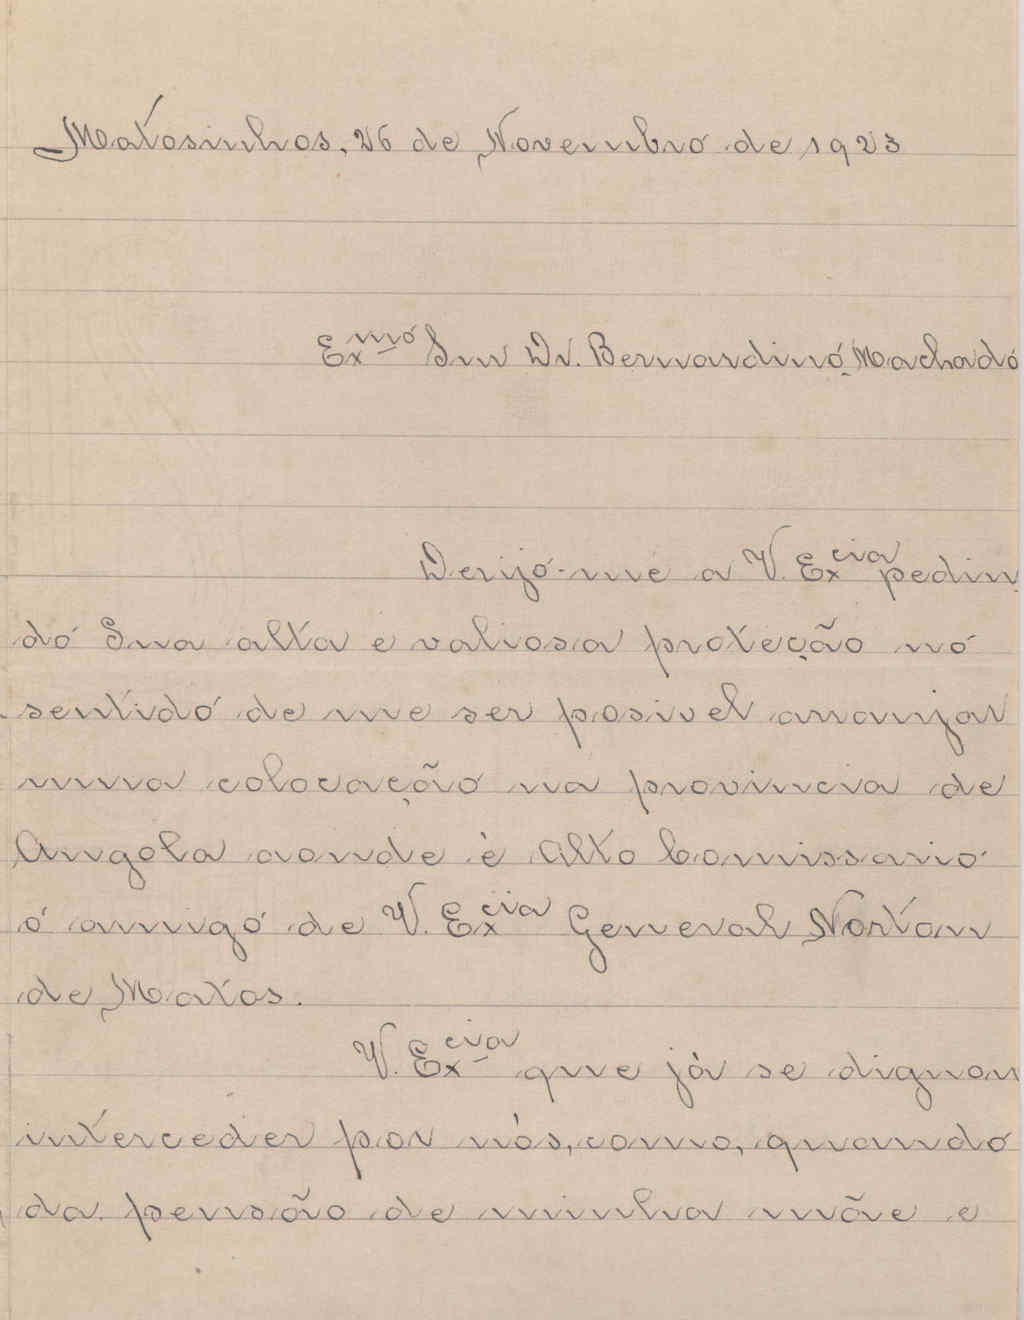 Matosinhos, 26 de Novembro de 1923
Exmo Snr Dr. Bernardino Machado
Derijo-me a V. Excia pedin
do Sua alta e valiosa proteção no
sentido de me ser posivel arranjar
uma colocação na provincia de
Angola aonde è Alto Comissario
o amigo de V. Excia General Nortan
de Matos.
V. Excia que jà se dignou
interceder por nòs, como, quando
da pensão de minha mãe e